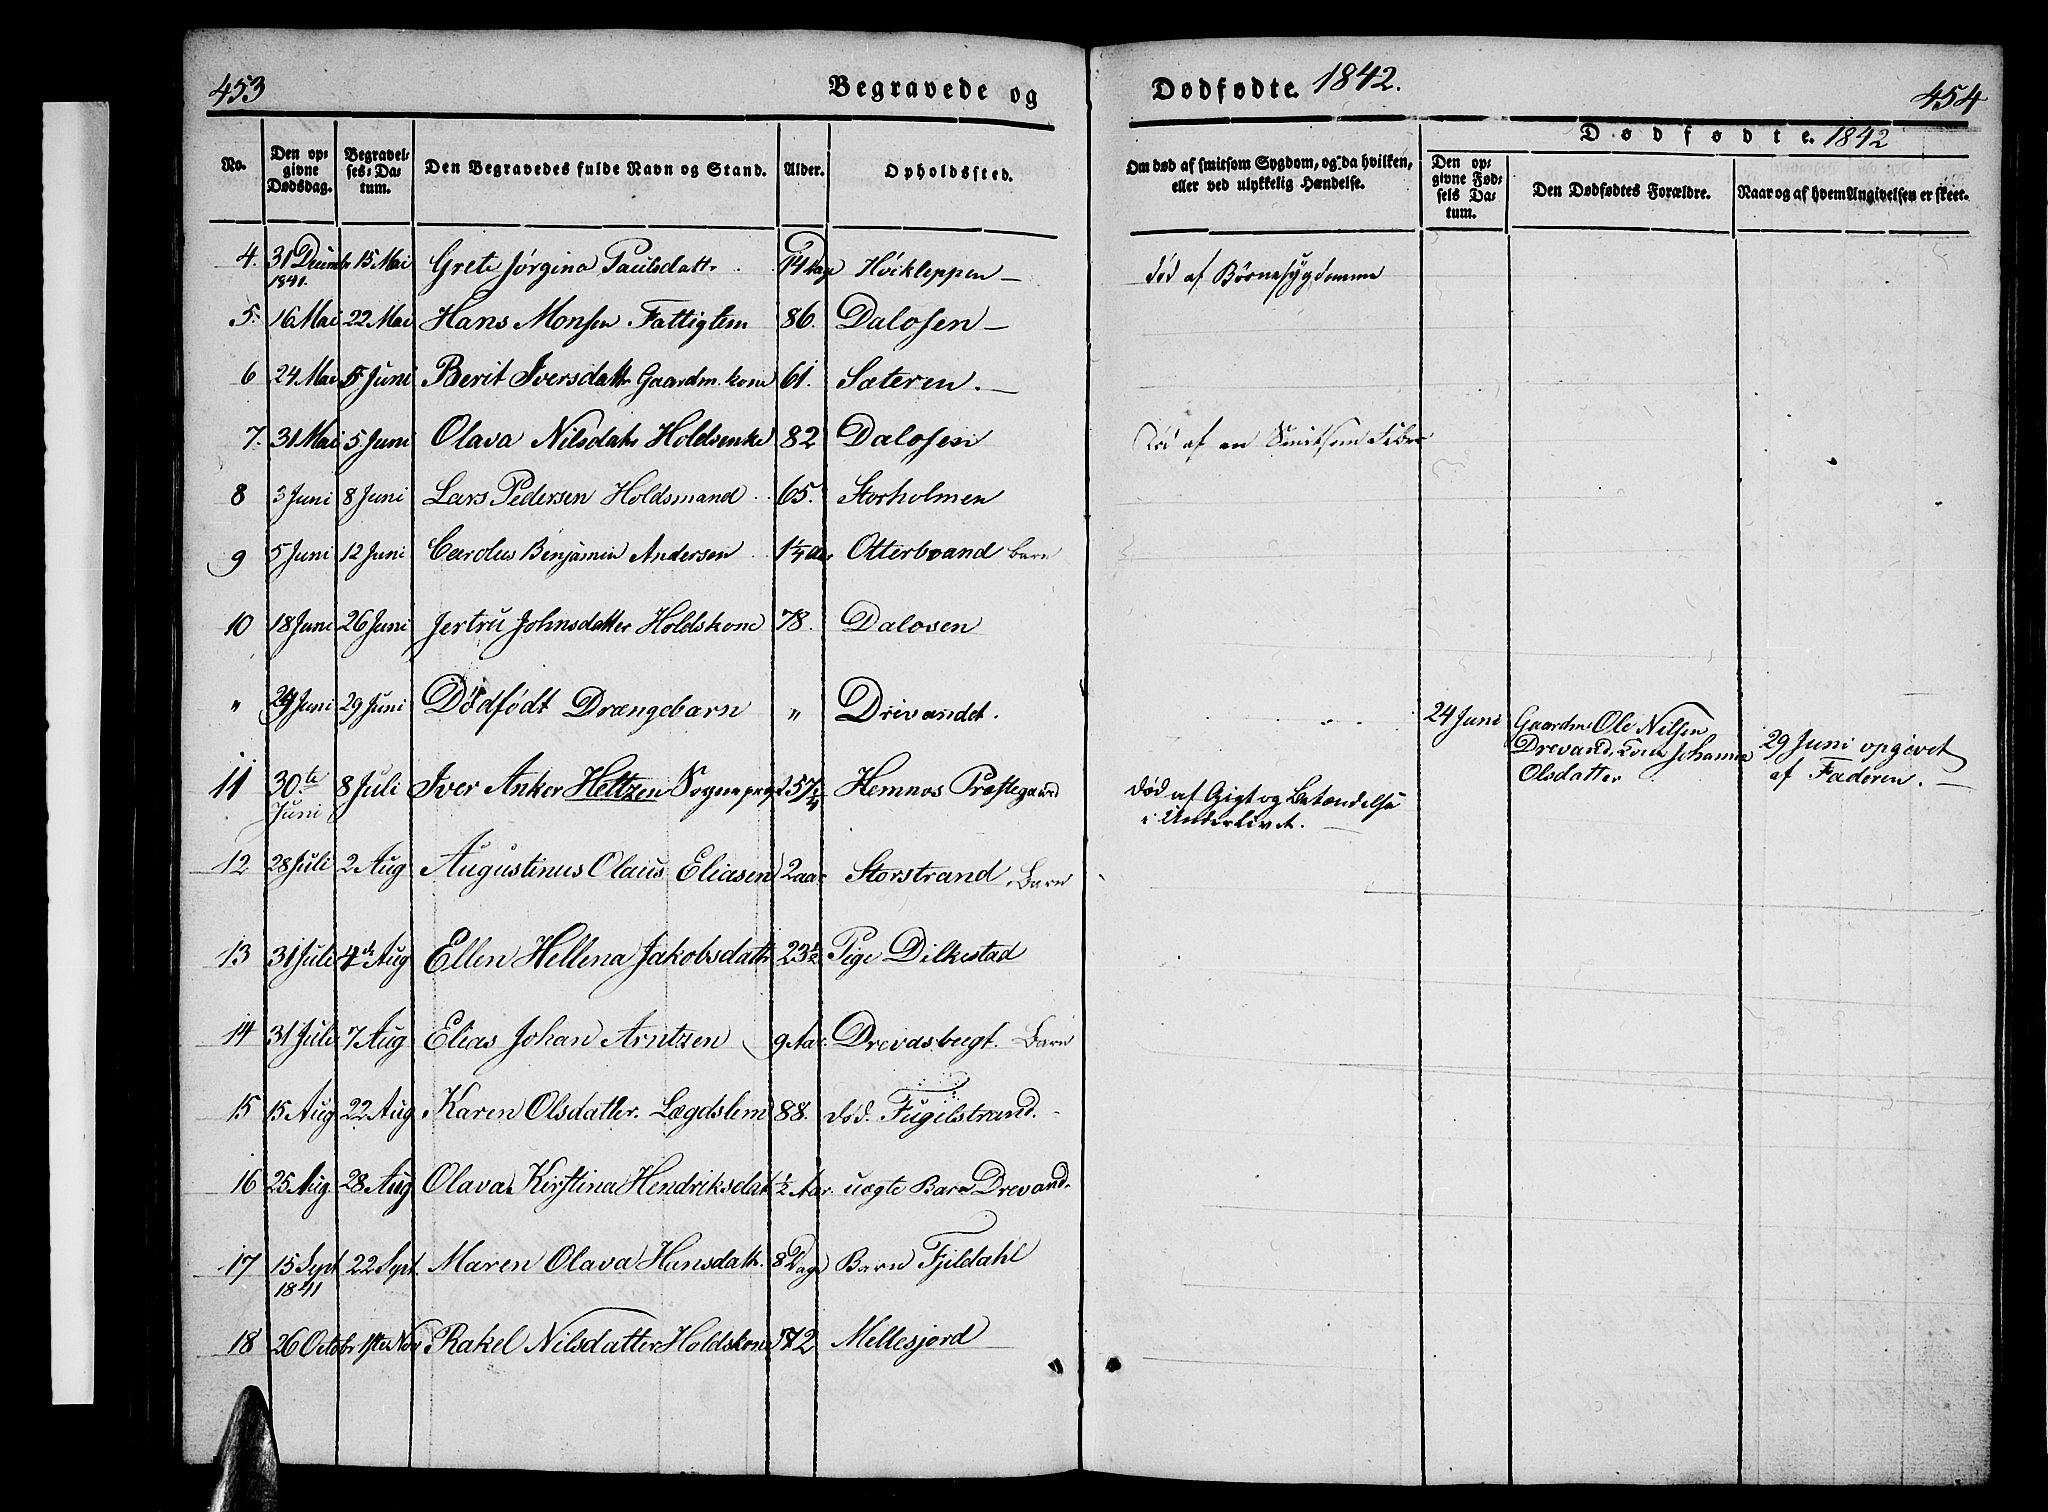 453
Begravede og
Dødfødte. 1842.
454
Dødfødte. 1842
No.
Den op-
givne
Dødsdag.
Begravel-
ses-Da-
tum.
Den Begravedes fulde Navn og Stand.
Alder.
Opholdssted.
Om død af smitsom Sygdom, og da hvilken,
eller ved ulykkelig Hændelse.
Den op-
givne Fød-
sels Da-
tum.
Den Dødfødtes Forældre.
Naar og af hvem Angivelsen er skeet.
4. 31 Decembr 15 Mai Grete Jørgina Paulsdattr 14 Dage Høikleppen — død af Børnesygdomme
1841.
5. 16 Mai 22 Mai Hans Monsen Fattiglem 86. Dalosen —
6 24 Mai 5 Juni Berit Iversdattr Gaardm. kone 61. Sæteren. —
7. 31 Mai 5 Juni Olava Nilsdatr Holdsenke 82 Dalosen Død af en Smitsom Feber
8 3 Juni 8 Juni Lars Pedersen Holdsmand 65. Storholmen
9 5 Juni 12 Juni Carolus Benjamin Andersen Aar Otterbrand barn
10 18 Juni 26 Juni Jertru Johnsdatter Holdskone 78. Dalosen
" 24 Juni 29 Juni Dödfödt Drængebarn " Drevandet. 24 Juni Gaardm Ole Nilsen
Drevand, Kone Johanna
Olsdatter
29 Juni opgivet
af Faderen. —
11 30te 8 Juli Iver Anker Heltzen Sognepræst 57 Hemnæs Præstegaard død af Gigt og Betændelse
Juni i Underlivet.
12 28 Juli 2 Aug Augustinus Olaus Eliasen 2 aar Storstrand Barn
13 31 Juli 4de Aug Ellen Hellena Jakobsdattr 23½ Pige Dilkestad
14 31 Juli 7 Aug Elias Johan Arntzen 9 Aar. Drevasbugt. Barn
15 15 Aug 22 Aug Karen Olsdatter. Lægdslem 88. død. Fugelstrand.
16 25 Aug 28 Aug Olava Kirstina Hendriksdat ½ Aar. uægte Barn Drevand.
17 15 Sept 22 Sept. Maren Olava Hansdatr. 8 Dage Barn Fjeldahl
1841
18 26 Octobr 1ste Nov. Rakel Nilsdatter Holdskone 72 Mellesjord